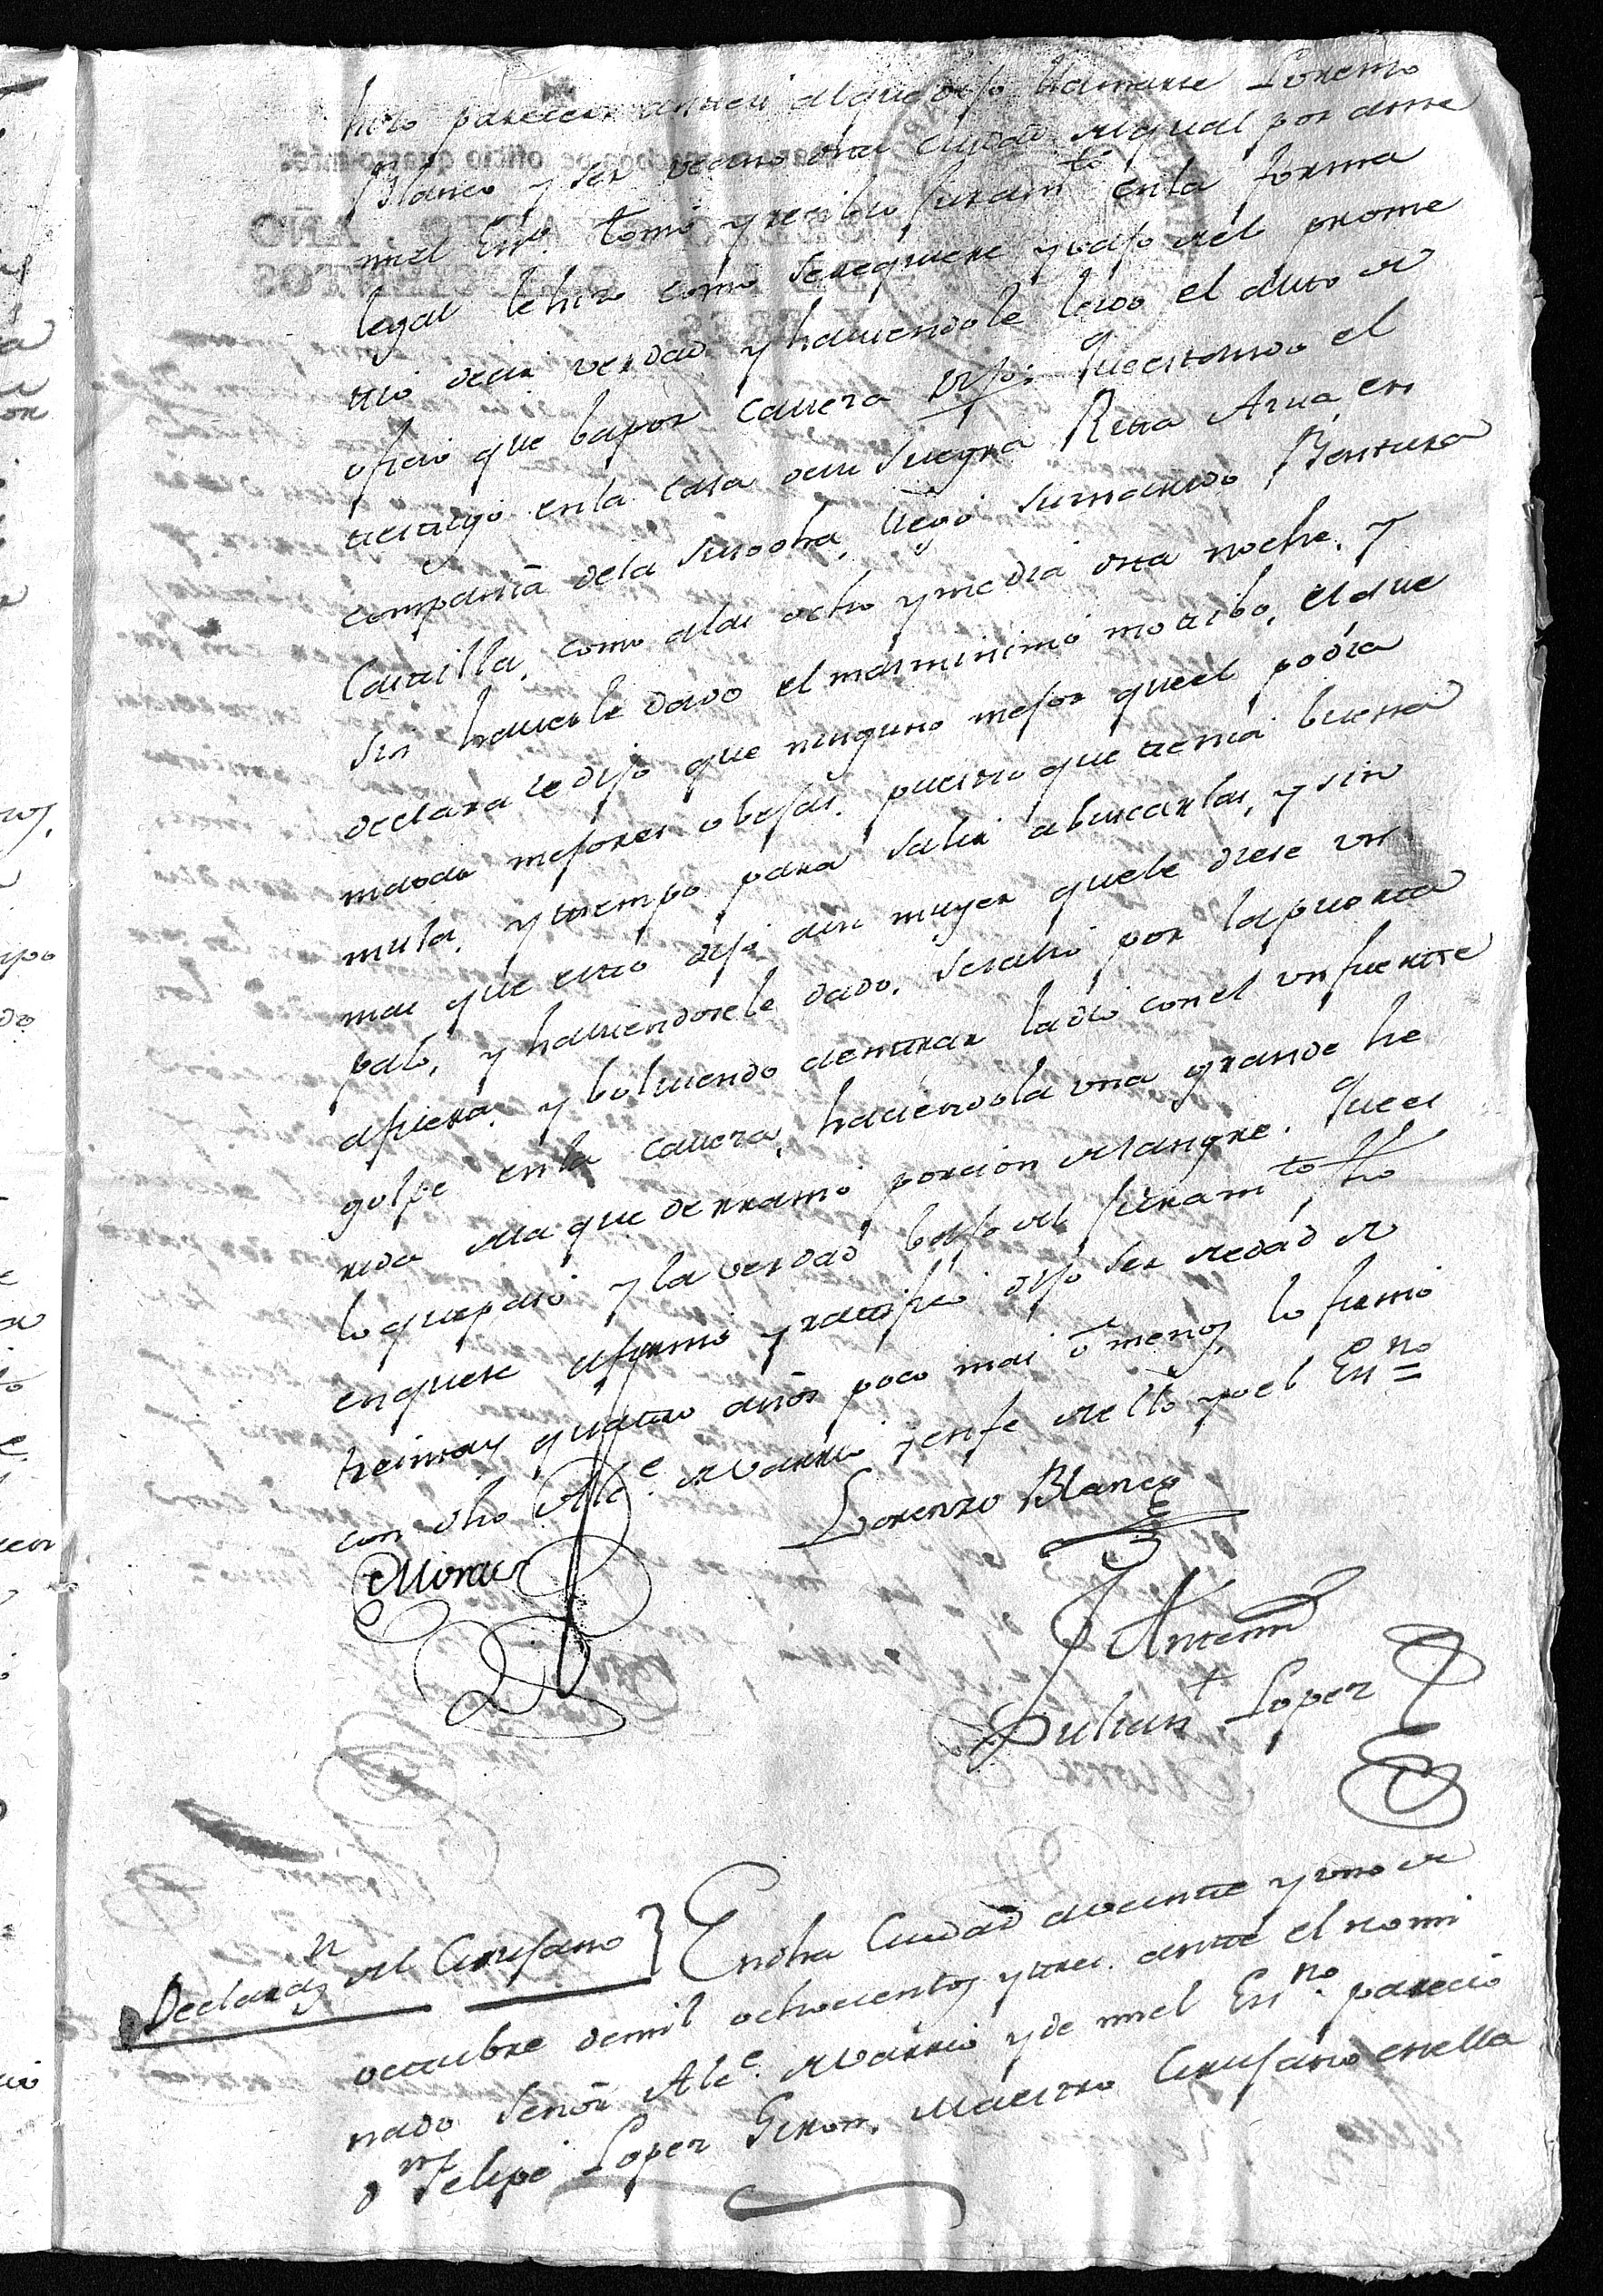 hizo parecer ante si al que dijo llamarse Lorenzo
Blanco y ser vecino desta Ciudad del qual por ante
mi el Esno. tomó y recibio juramto. en la forma
legal le hizo como se requiere y vajo de el prome
tio decir verdad y haviendole leido el auto de
oficio que ba por cavera dijo: Que estando el
testigo en la casa de su suegra Rita Arua, en
compañia de la susodha, llegó su marido Bentura
Casilla, como a las ocho y media esta noche, y
sin haverle dado el mas minimo motibo, el que
declara le dijo que ninguno mejor que el podia
matar mejores obejas, puesto que tenia buena
mula, y tiempo para salir a buscarlas, y sin
mas que esto dijo a su muger que le diese un
palo, y haviendosele dado, se salio por la puerta
afuera, y bolviendo a entrar la dio con el un fuerte
golpe en la cavera, haciendola una grande he
rida de la que derramó porcion de sangre. Que es
lo que pasó y la verdad bajo del juramto. fho
en que se afirmó y ratificó dijo ser de edad de
treinta y quatro años poco mas ó menos, lo firmó
con dho Alce. de Varrio, y en fe de ello yo el Esno=
Lorenzo Blanco
Antemi
Julian Lopez
Declarazn. del Cirujano } En dha Ciudad a veinte y uno de
octubre de mil ochocientos y tres. ante el nomi
nado Señor Alce. de Varrio y de mi el Esno. parecio
dn Felipe Lopez Giron, Maestro Cirujano en ella